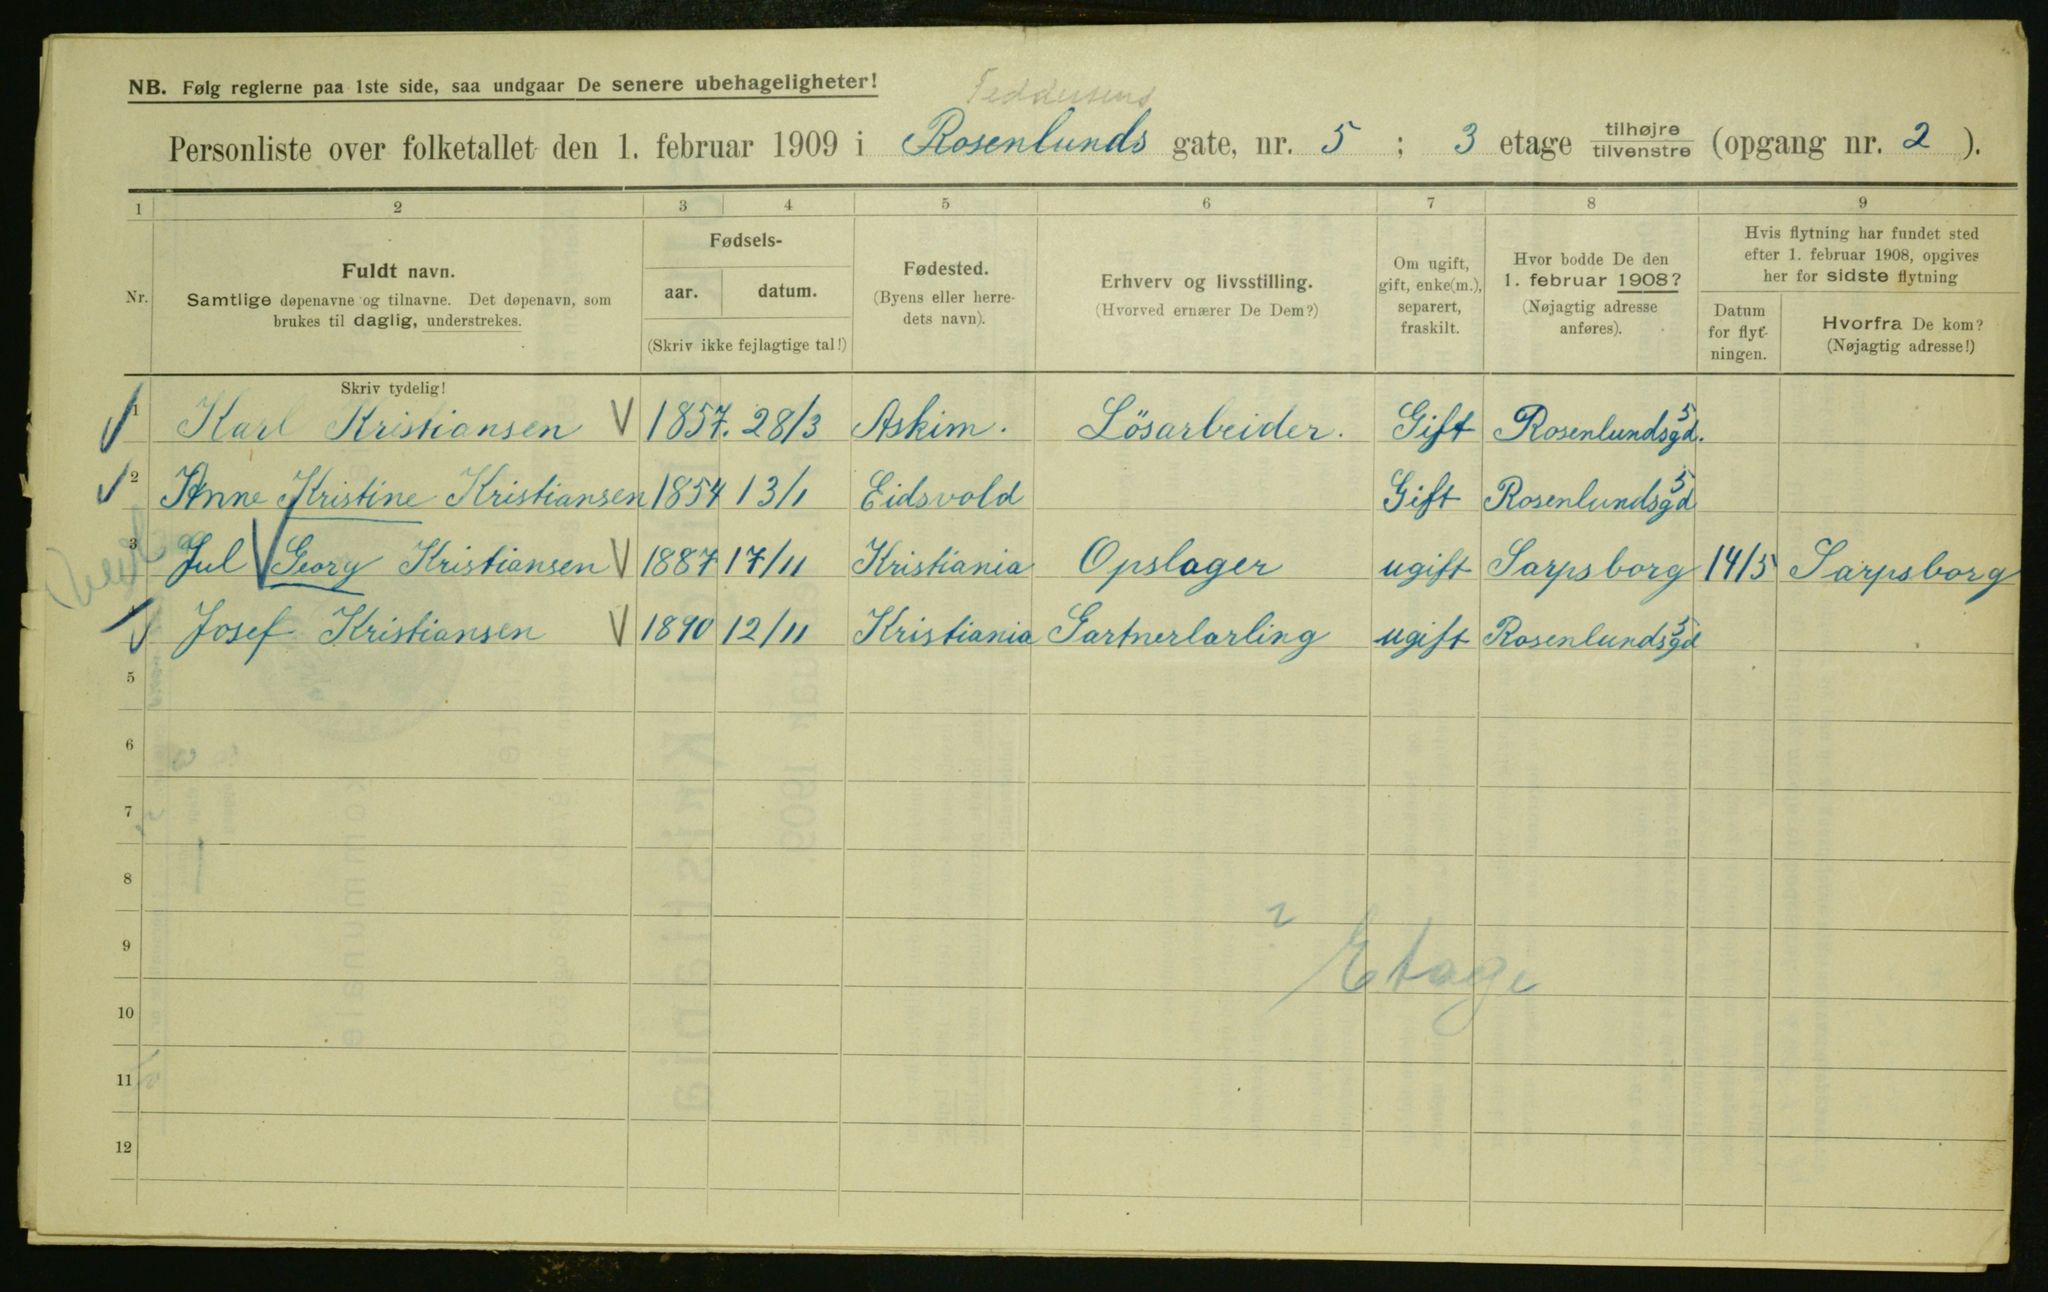 NB. Følg reglerne paa 1ste side, saa undgaar De senere ubehageligheter!
Feddersens
Personliste over folketallet den 1. februar 1909 i Rosenlunds gate, nr. 5 ; 3 etage tilhøjre / tilvenstre (opgang nr. 2 ).
1 2 3 4 5 6 7 8 9
Nr.
Fuldt navn.
Samtlige døpenavne og tilnavne. Det døpenavn, som
brukes til daglig, understrekes.
Fødsels-
aar. datum.
(Skriv ikke fejlagtige tal!)
Fødested.
(Byens eller herre-
dets navn).
Erhverv og livsstilling.
(Hvorved ernærer De Dem?)
Om ugift,
gift, enke(m.),
separert,
fraskilt.
Hvor bodde De den
1. februar 1908?
(Nøjagtig adresse
anføres).
Hvis flytning har fundet sted
efter 1. februar 1908, opgives
her for sidste flytning
Datum
for flyt-
ningen.
Hvorfra De kom?
(Nøjagtig adresse!)
Skriv tydelig!
1 Karl Kristiansen 1857. 28/3 Askim. Lösarbeider. Gift Rosenlundsgd. 5
2 Anne Kristine Kristiansen 1854 13/11 Eidsvold Gift Rosenlundsgd 5
3 Jul Georg Kristiansen 1887 17/11 Kristiania Opslager ugift Sarpsborg 14/5 Sarpsborg
Josef Kristiansen 1890 12/11 Kristiania Gartnerlarling ugift Rosenlundsgd 5
5
6
7
8
9
2
Etage
10
11
12